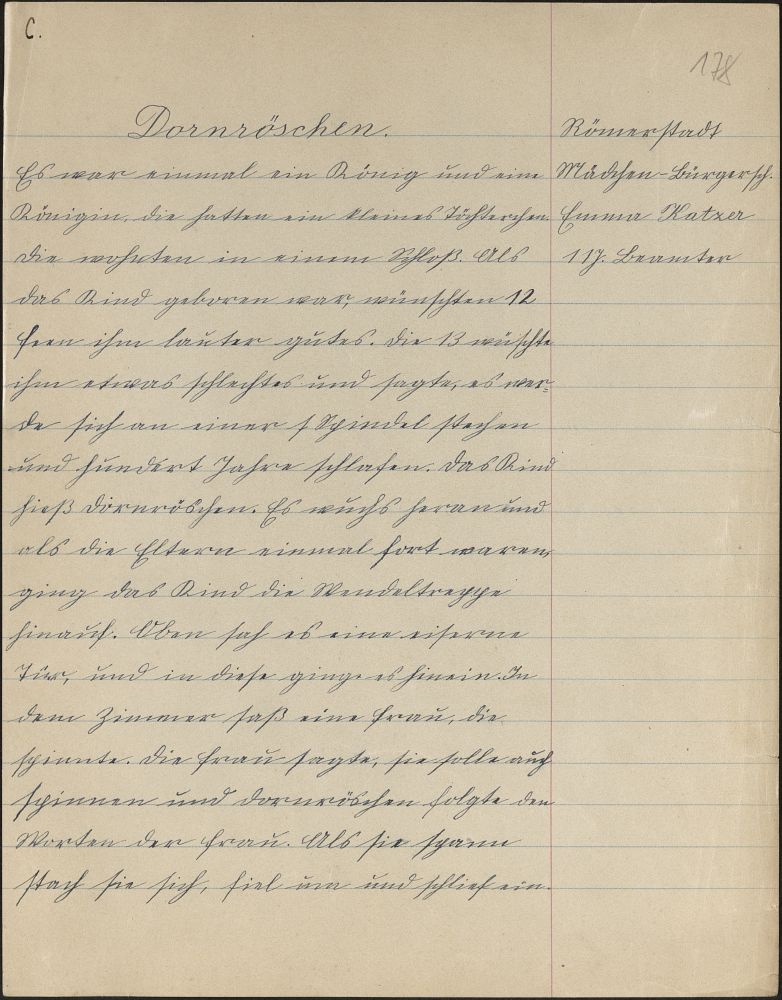 C.
178
Dornröschen.
Es war einmal ein König und eine
Königin, die hatten ein kleines Töchterchen.
Die wohnten in einem Schloß. Als
das Kind geboren war, wünschten 12
Feen ihm lauter gutes. Die 13 wüschte
ihm etwas schlechtes und sagte, es wer=
de sich an einer Spindel stechen
und hundert Jahre schlafen. Das Kind
hieß Dornröschen. Es wuchs heran und
als die Eltern einmal fort waren,
ging das Kind die Wendeltreppe
hinauf. Oben sah es eine eiserne
Tür, und in diese ginge es hinein. In
dem Zimmer saß eine Frau, die
spinnte. Die Frau sagte, sie solle auch
spinnen und Dornröschen folgte den
Worten der Frau. Als sie spann
stach sie sich, fiel um und schlief ein.
Römerstadt
Mädchen-Bürgersch.
Emma Katzer
11J. Beamter